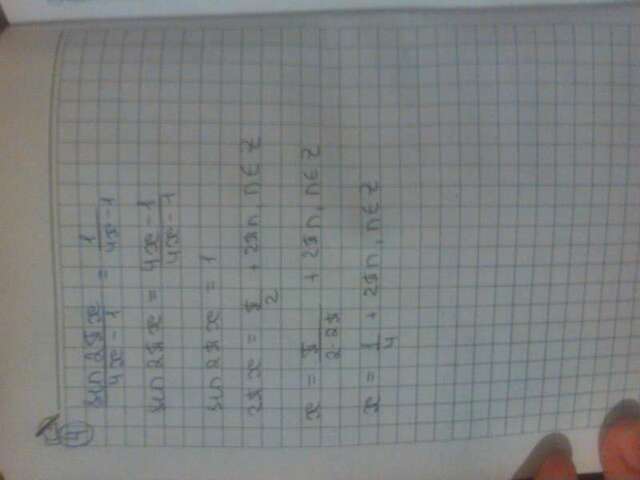 4
sin2πx/4x-1 = 1/4x-1
sin2πx = 4x-1/4x-1
sin2πx = 1
2πx = π/2 + 2πn, n∈Z
x = π/2·2π + 2πn, n∈Z
x = 1/4 + 2πn, n∈Z